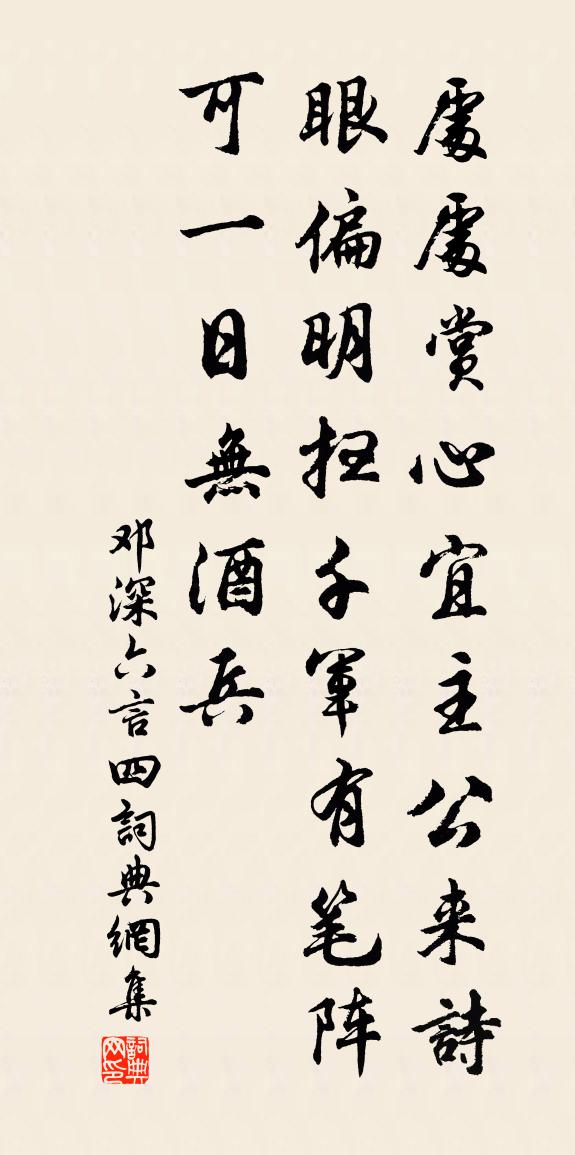 處處赏心宜主公来詩
眼偏明扫千軍有笔阵
可一日無酒兵
邓深六言四詞典網集
詞典网印